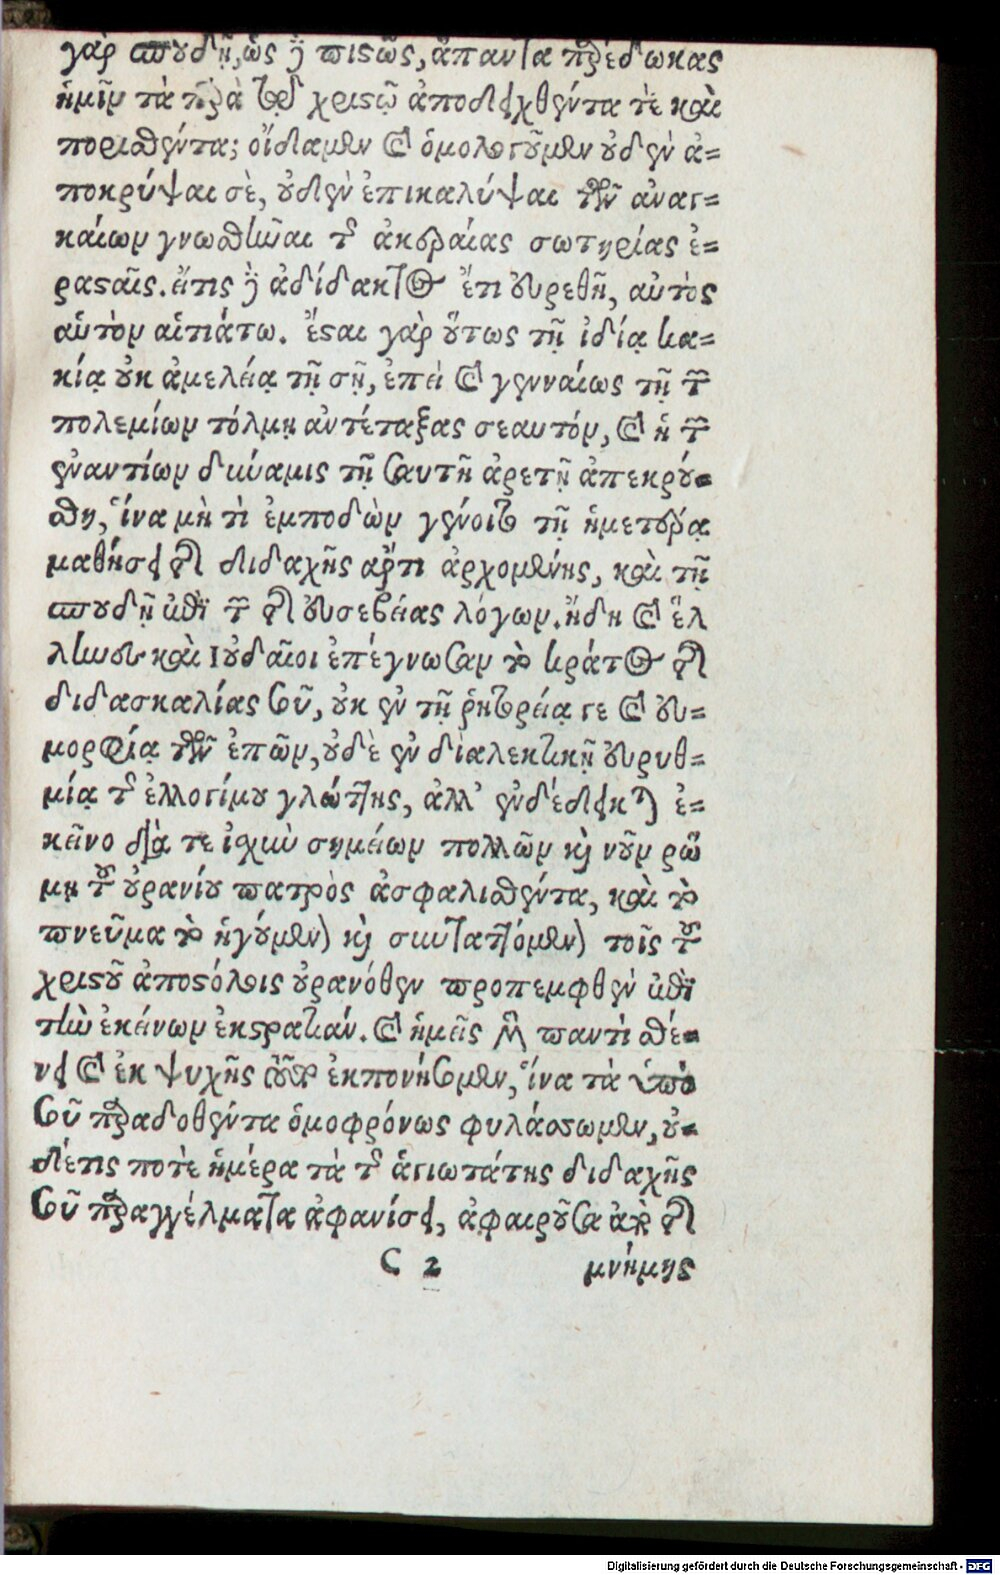 γὰρ σπουδῇ, ὡς δὲ πιστῶς, ἅπαντα παρέδωκας
ἡμῖν τὰ παρὰ τοῦ χριστοῦ ἀποδειχθέντα τὲ καὶ
πορισθέντα; οἴδαμεν καὶ ὁμολογοῦμεν οὐδὲν ἀ-
ποκρύψαι σὲ, οὐδὲν ἐπικαλύψαι τῶν ἀναγ-
καίων γνωσθῆναι τ ἀκεραίας σωτηρίας ἐ-
ρασταῖς. εἴτις δὲ ἀδίδακτος ἔτι εὑρεθῇ, αὐτὸς
αὑτὸν αἰτιάτω. ἔσται γὰρ οὕτως τῇ ἰδίᾳ κα-
κίᾳ οὐκ ἀμελείᾳ τῇ σῇ, ἐπεὶ καὶ γενναίως τῇ τῶν
πολεμίων τόλμῃ ἀντέταξας σεαυτόν, καὶ ἡ τῶν
ἐναντίων δύναμις τῇ σαυτῆ ἀρετῇ ἀπεκρού-
σθη, ἵνα μὴ τὶ ἐμποδὼν γένοιτο τῇ ἡμετέρᾳ
μαθήσει τῆς διδαχῆς ἄρτι ἀρχομένης, καὶ τῇ
σπουδῇ ἐπὶ τῶν τῆς εὐσεβείας λόγων. ἤδη καὶ ἕλ
ληνες καὶ Ιουδαῖοι ἐπέγνωσαν τὸ κράτος τῆς
διδασκαλίας σοῦ, οὐκ ἐν τῇ ῥητορείᾳ γε καὶ εὐ-
μορφίᾳ τῶν ἐπῶν, οὐδὲ ἐν διαλεκτικῇ εὐρυθ-
μίᾳ τ ἐλλογίμου γλώττης, ἀλλ' ἐνδέδεικται ἐ-
κεῖνο διά τε ἰσχὺν σημείων πολλῶν καὶ νῦν ῥώ
μῃ τοῦ οὐρανίου πατρὸς ἀσφαλισθέντα, καὶ τὸ
πνεῦμα τὸ ἡγούμενον καὶ συνταττόμενον τοῖς τοῦ
χριστοῦ ἀποστόλοις οὐρανόθεν προπεμφθὲν ἐπὶ
τὴν ἐκείνων ἐκστρατείαν. καὶ ἡμεῖς ἐν παντὶ σθέ-
νει καὶ ἐκ ψυχῆς ἐκπονήσομεν, ἵνα τὰ ὑπὸ
σοῦ παραδοθέντα ὁμοφρόνως φυλάσσωμεν, οὐ-
δέτις ποτὲ ἡμέρα τὰ τ ἁγιωτάτης διδαχῆς
σοῦ παραγγέλματα ἀφανίσει, ἀφαιροῦσα ἀπὸ τῆς
C 2 μνήμης
Digitalisierung gefördert durch die Deutsche Forschungsgemeinschaft - DFG